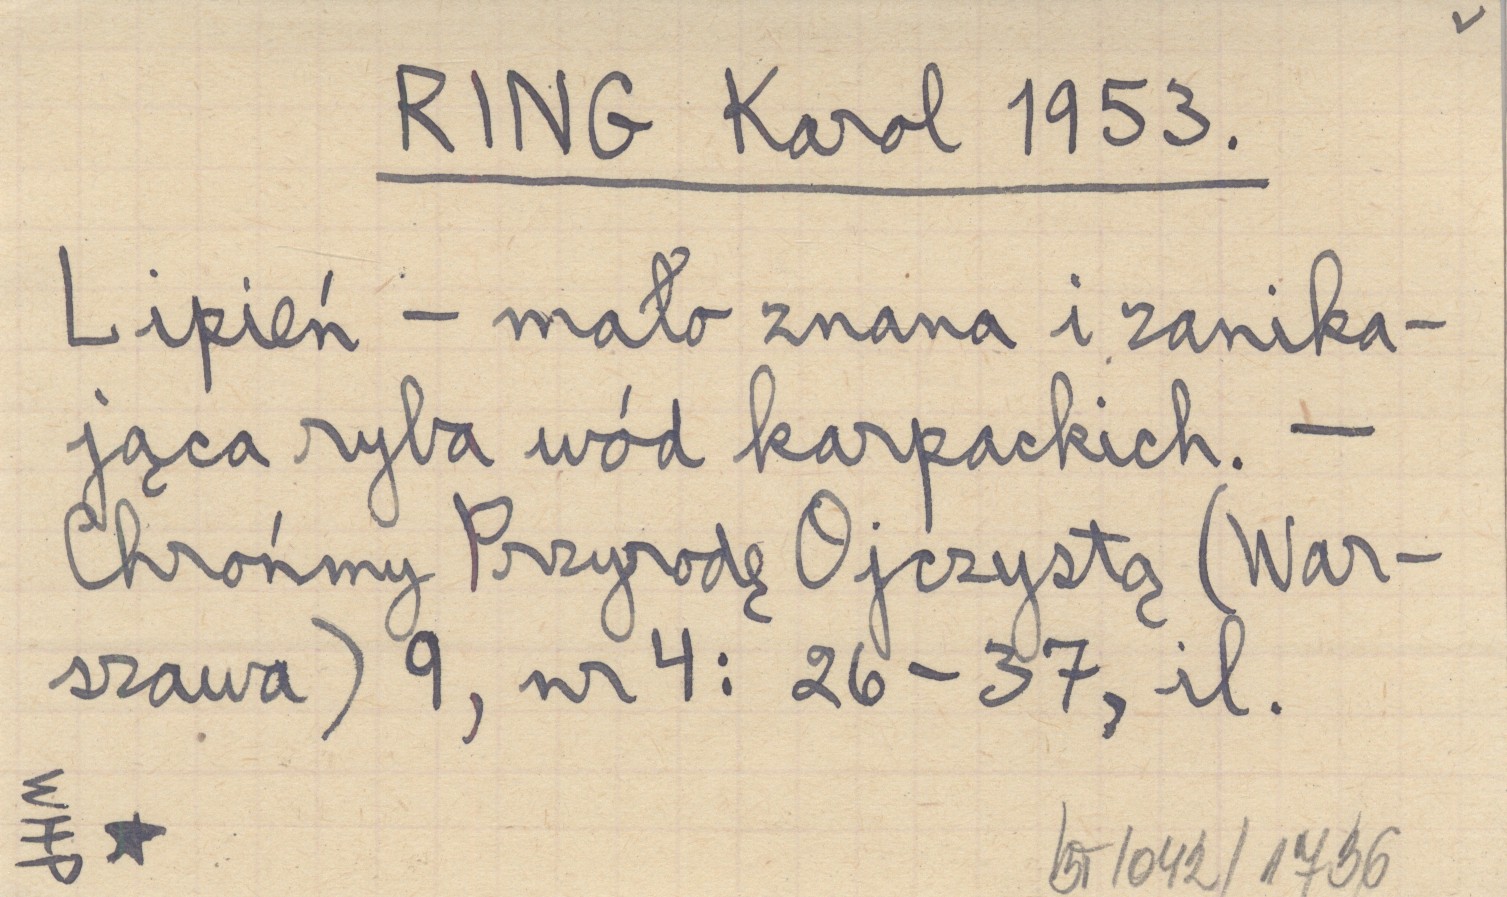 RING Karol 1953.
Lipień – mało znana i zanika-
jąca ryba wód karpackich. —
Chrońmy Przyrodę Ojczystą (War-
szawa) 9, nr 4: 26–37, il.
WHP
/042/1736